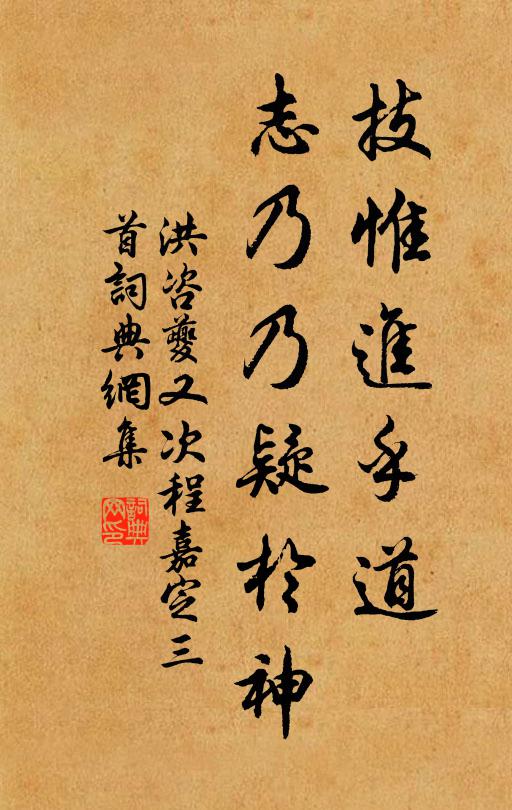 技惟進乎道
志乃乃疑於神
洪咨夔又次程嘉定三
首詞典網集
詞典
网印